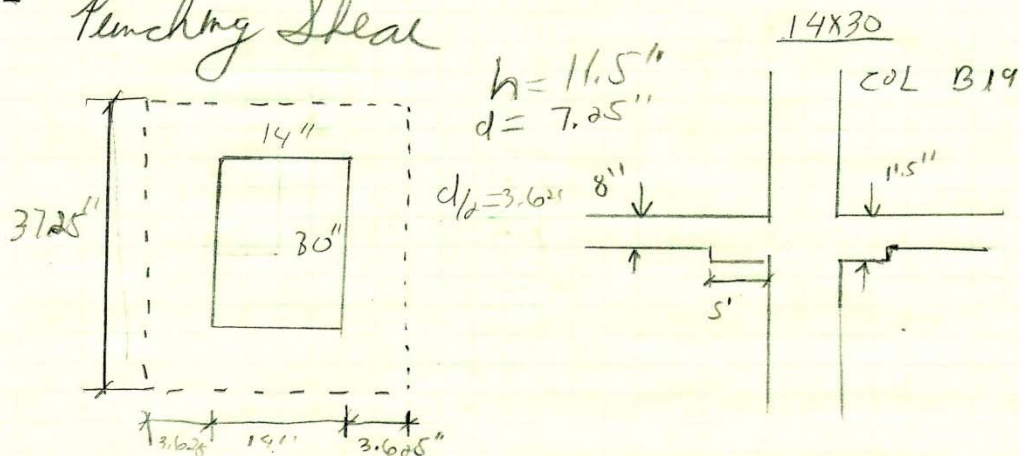 Punching Shear
14X30
COL B19
h = 11.5"
d = 7.25"
d/2 = 3.625
14"
37.25"
30"
3.625
14"
3.625"
8"
11.5"
5'